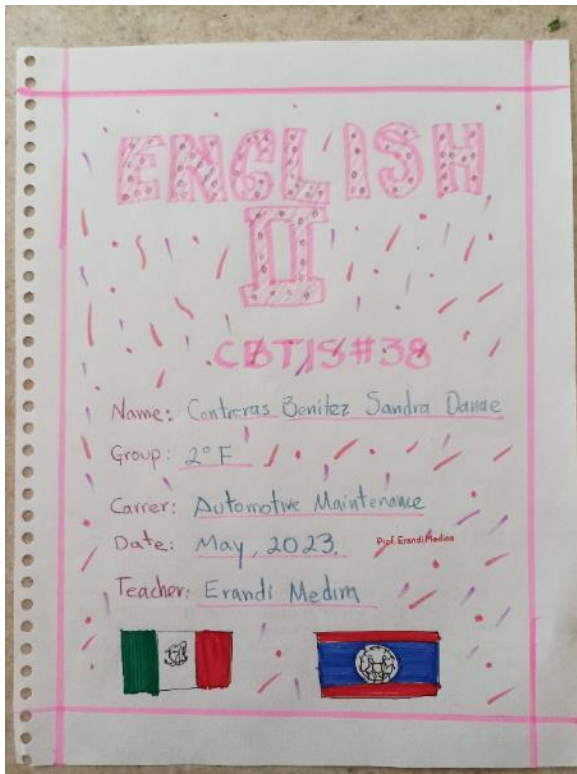 ENGLISH
II
CBTIS#38
Name: Contreras Benitez Sandra Danae
Group: 2° F
Carrer: Automotive Maintenance
Date: May, 2023.
Prof. Erandi Medina
Teacher: Erandi Medina